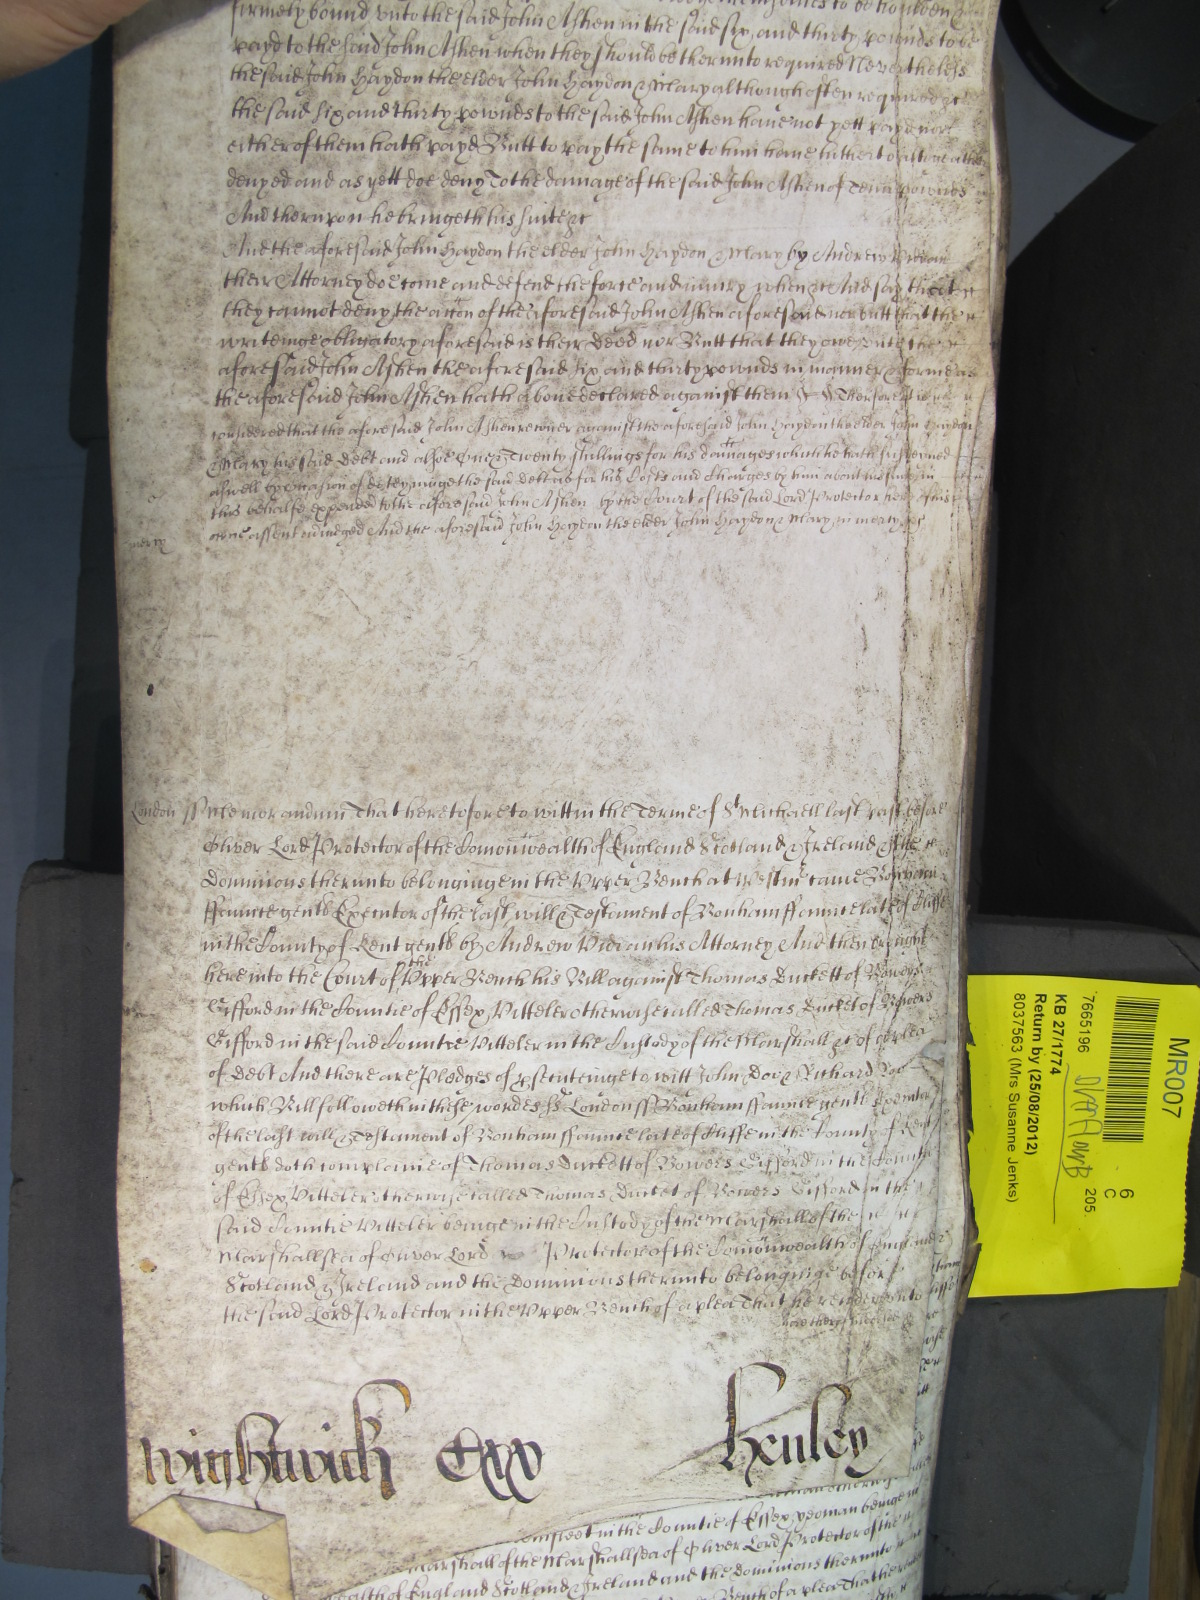 firmely bound unto the said John Ashen in the said six and thirty pounds to be
payd to the said John Ashen when they should be therunto required Nevertheless
the said John Haydon the elder John Haydon & Mary although often required &c
the said six and thirty pounds to the said John Ashen have not yett payd nor
either of them hath payd Butt to pay the same to him have hitherto altogeather
denyed and as yett doe deny To the damage of the said John Ashen of Tenn pounds
And therupon he bringeth his suite &c
And the aforesaid John Haydon the elder John Haydon & Mary by Andrew Vidian
their Attorney doe come and defend the force and iniury when &c And say that
they cannot deny the accon of the aforesaid John Ashen aforesaid nor butt that the
writeinge obligatory aforesaid is their Deed nor Butt that they owe unto the
aforesaid John Ashen the aforesaid six and thirty pounds in manner & forme as
the aforesaid John Ashen hath above declared against them Therfore it is
considered that the aforesaid John Ashen recover against the aforesaid John Haydon the elder John Haydon
& Mary his said Debt and alsoe Twenty shillings for his damages which he hath susteyned
aswell by reason of deteyninge the said debt as for his Costs and Charges by him about his suite in
this behalfe expended to the aforesaid John Ashen by the Court of the said Lord Protector here
assent adiudged And the aforesaid John Haydon the elder John Haydon & Mary in mercy &c
mercy
London ss Memorandum That heretofore to witt in the Terme of St Michaell last past before
Oliver Lord Protector of the Comonwealth of England Scotland & Ireland & the
Dominions therunto belonginge in the Upper Bench at Westmr came Bonham
ffaunce gentl Executor of the last will & Testament of Bonham ffaunce late of Cliffe
in the County of Kent gentl by Andrew Vidian his Attorney And then brought
here into the Court of the Upper Bench his Bill against Thomas Duckett of Bowers
Gifford in the Countie of Essex Vitteler otherwise called Thomas Ducket of Bowers
Gifford in the said Countie Vitteler in the Custody of the Marshall &c of a plea
of Debt And there are Pledges of psecuteinge to witt John Doe & Richard Roo
which Bill followeth in these wordes ss London ss Bonham ffaunce gentl Executor
of the last will & Testament of Bonham ffaunce late of Cliffe in the County of Kent
gentl doth complaine of Thomas Duckett of Bowers Gifford in the Countie
of Essex Vitteler otherwise called Thomas Ducket of Bowers Gifford in the
said Countie Vitteler beinge in the Custody of the Marshall of the
Marshallsea of Oliver Lord Protector of the Comonwealth of England
Scotland & Ireland and the Dominions therunto belonginge before
the said Lord Protector in the Upper Bench of a plea That he render unto
Wightwick Exx Henley
in the Countie of Essex yeoman beinge in
Marshall of the Marshallsea of Oliver Lord Protector of the
of England Scotland & Ireland and the Dominions therunto
Bench of a plea That he
MR007
7665196
6
C
205.
KB 27/1774
Return by (25/08/2012)
8037563 (Mrs Susanne Jenks)